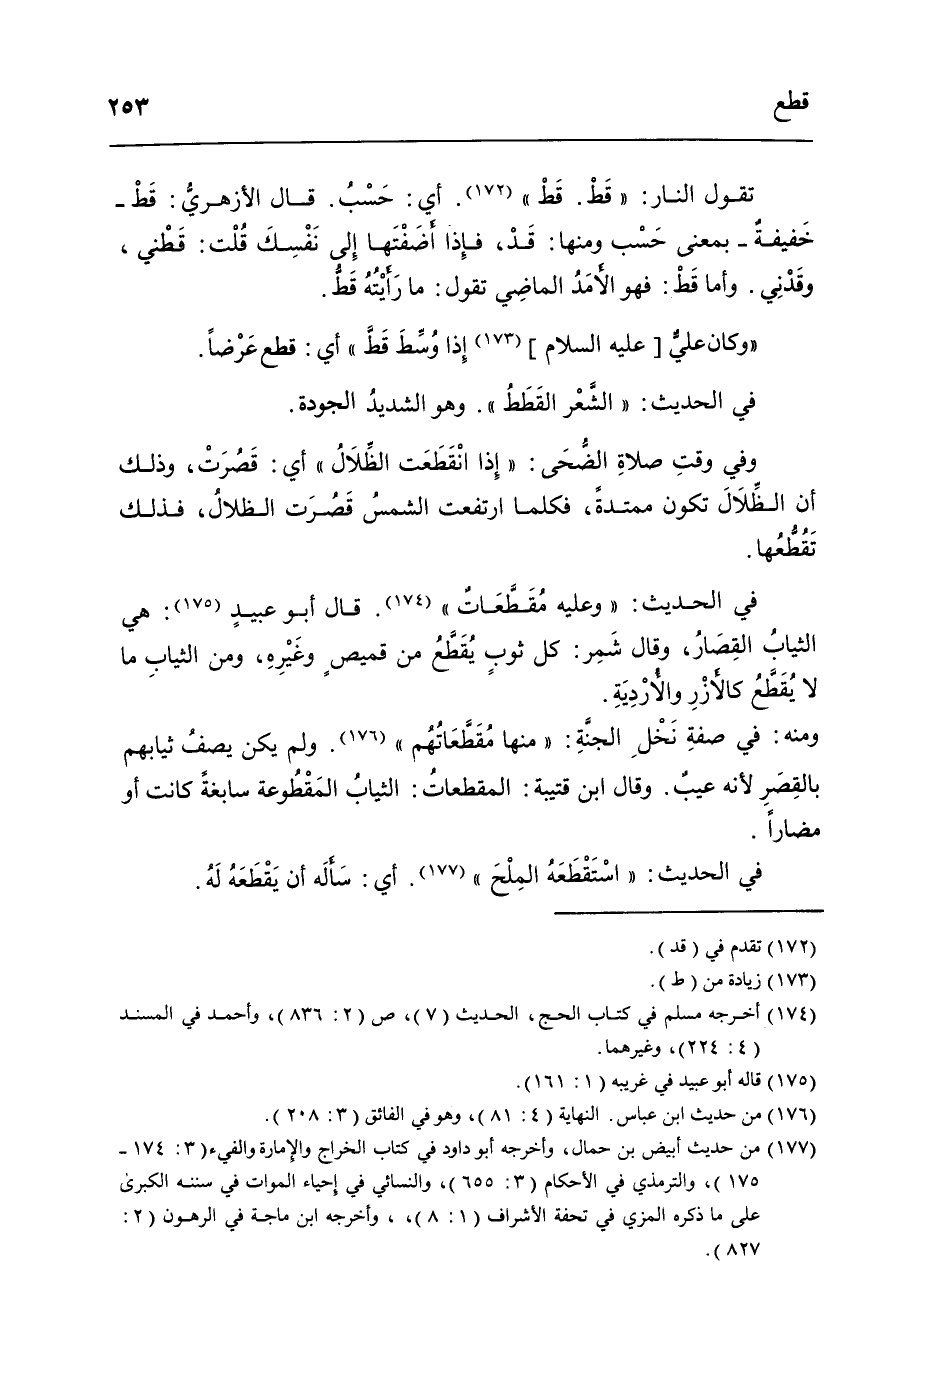 قطع
٢٥٣
تقول النار: « قَطْ. قَطْ » (١٧٢). أي: حَسْبُ. قال الأزهريُّ: قَطْ ـ
خَفيفةٌ ـ بمعنى حَسْب ومنها: قَدْ، فإذا أَضَفْتَها إلى نَفْسِكَ قُلْت: قَطْني ،
وقَدْنِي. وأما قَطْ: فهو الأَمَدُ الماضِي تقول: ما رَأَيْتُهُ قَطُّ.
«وكان عليٌّ [ عليه السلام ] (١٧٣) إذا وُسِّطَ قَطَّ » أي: قطع عَرْضاً.
في الحديث: « الشَّعْر القَطَطُ ». وهو الشديدُ الجودة.
وفي وقتِ صلاةِ الضُّحَى: « إذا انْقَطَعَت الظِّلَالُ » أي: قَصُرَتْ، وذلك
أن الظِّلَالَ تكون ممتدةً، فكلما ارتفعت الشمسُ قَصُرَت الظلالُ، فذلك
تَقُطُّعُها.
في الحديث: « وعليه مُقَطَّعَاتٌ » (١٧٤). قال أبو عبيدٍ (١٧٥): هي
الثيابُ القِصَارُ، وقال شَمِر: كل ثوبٍ يُقَطَّعُ من قميصٍ وغَيْرِهِ، ومن الثيابِ ما
لا يُقَطَّعُ كالأَزْرِ والأُرْدِيَةِ.
ومنه: في صفةِ نَخْلِ الجنَّةِ: « منها مُقَطَّعَاتُهُم » (١٧٦). ولم يكن يصفُ ثيابهم
بالقِصَرِ لأنه عيبٌ. وقال ابن قتيبة: المقطعاتُ: الثيابُ المَقْطُوعة سابغةً كانت أو
مضاراً .
في الحديث: « اسْتَقْطَعَهُ المِلْحَ » (١٧٧). أي: سَأَلَه أن يَقْطَعَهُ لَهُ.
(١٧٢) تقدم في ( قد ).
(١٧٣) زيادة من ( ط ).
(١٧٤) أخرجه مسلم في كتاب الحج، الحديث ( ٧ )، ص ( ٢ : ٨٣٦ )، وأحمد في المسند
( ٤ : ٢٢٤)، وغيرهما.
(١٧٥) قاله أبو عبيد في غريبه ( ١ : ١٦١).
(١٧٦) من حديث ابن عباس. النهاية ( ٤ : ٨١ )، وهو في الفائق ( ٣ : ٢٠٨ ).
(١٧٧) من حديث أبيض بن حمال، وأخرجه أبو داود في كتاب الخراج والإمارة والفيء( ٣ : ١٧٤ ـ
١٧٥ )، والترمذي في الأحكام ( ٣ : ٦٥٥ )، والنسائي في إحياء الموات في سننه الكبرىٰ
على ما ذكره المزي في تحفة الأشراف ( ١ : ٨ )، ، وأخرجه ابن ماجة في الرهون ( ٢ :
٨٢٧ ).